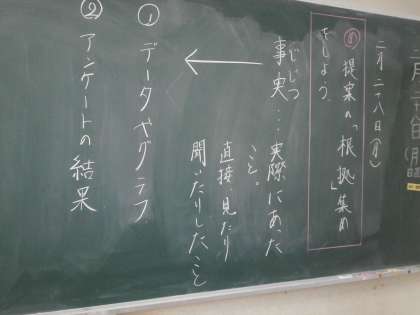 二月二十八日(月)
め 提案の「根拠」集め
をしよう。
じじつ
事実…実際にあった
こと。
直接、見たり
聞いたりしたこと
① データやグラフ
② アンケートの結果